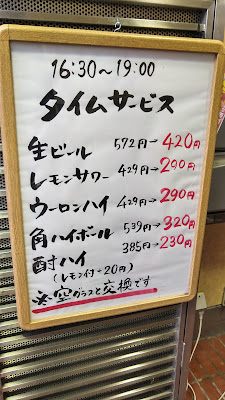 16:30~19:00
タイムサービス
生ビール 572円→420円
レモンサワー 429円→290円
ウーロンハイ 429円→290円
角ハイボール 539円→320円
酎ハイ 385円→230円
(レモン付+20円)
※空グラスと交換です